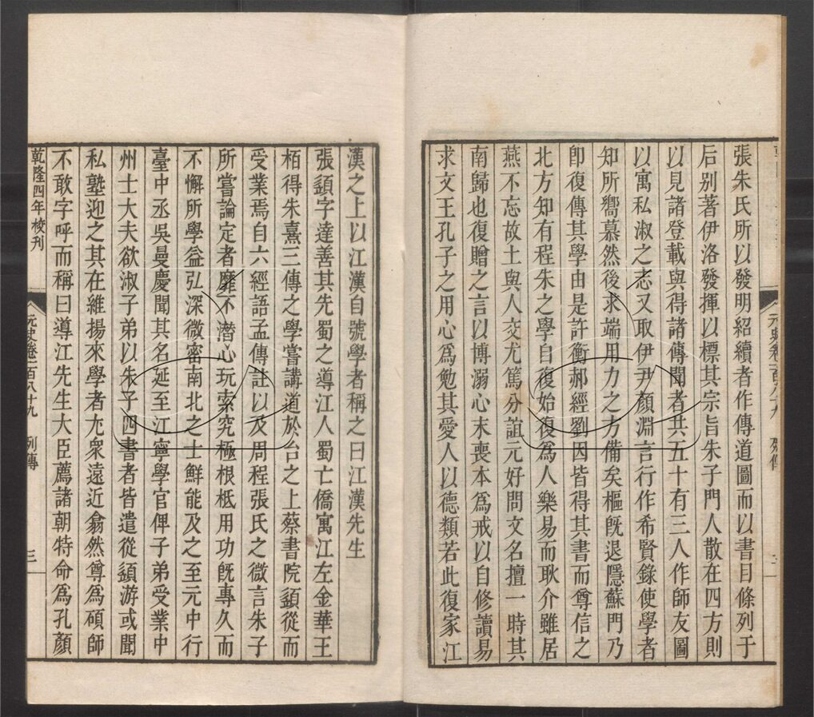 張朱氏所以發明紹續者作傳道圖而以書目條列于
后别著伊洛發揮以標其宗旨朱子門人散在四方則
以見諸登載與得諸傳聞者共五十有三人作師友圖
以寓私淑之志又取伊尹顔淵言行作希賢錄使學者
知所嚮慕然後求端用力之方備矣樞旣退隱蘇門乃
卽復傳其學由是許衡郝經劉因皆得其書而尊信之
北方知有程朱之學自復始復爲人樂易而耿介雖居
燕不忘故土與人交尤篤分誼元好問文名擅一時其
南歸也復贈之言以博溺心末喪本爲戒以自修讀易
求文王孔子之用心爲勉其愛人以德類若此復家江
元史卷一百八十九 列傳
三
漢之上以江漢自號學者稱之曰江漢先生
張𩓥字達善其先蜀之導江人蜀亡僑寓江左金華王
栢得朱熹三傳之學嘗講道於台之上蔡書院𩓥從而
受業焉自六經語孟傳註以及周程張氏之微言朱子
所嘗論定者靡不潜心玩索究極根柢用功旣專久而
不懈所學益弘深微密南北之士鮮能及之至元中行
臺中丞吳曼慶聞其名延至江寧學官俾子弟受業中
州士大夫欲淑子弟以朱子四書者皆遣從𩓥游或闢
私塾迎之其在維揚來學者尤衆遠近翕然尊爲碩師
不敢字呼而稱曰導江先生大臣薦諸朝特命爲孔顔
乾隆四年校刊
元史卷一百八十九 列傳
三